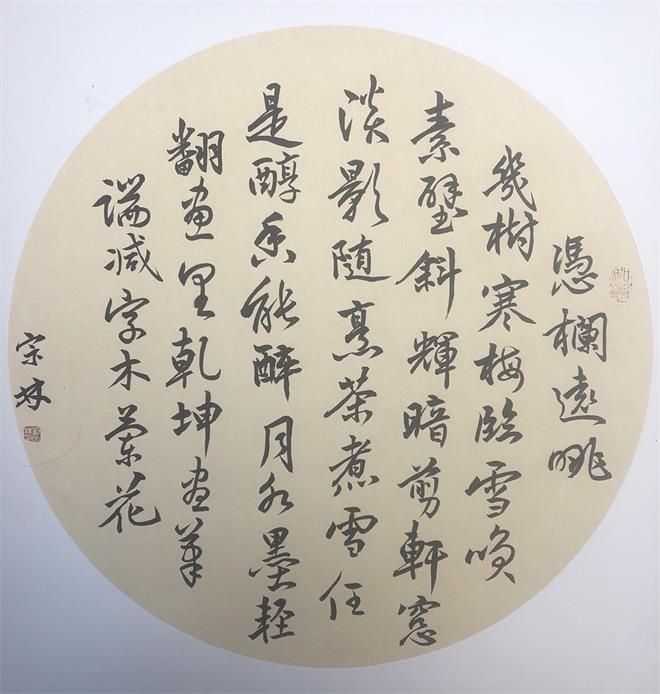 憑欄遠眺
幾樹寒梅臨雪咲
素壁斜輝暗剪軒窓
淡影随烹茶煮雪任
是醇香能醉月水墨輕
翻畫里乾坤畫筆
端减字木蘭花
宗林